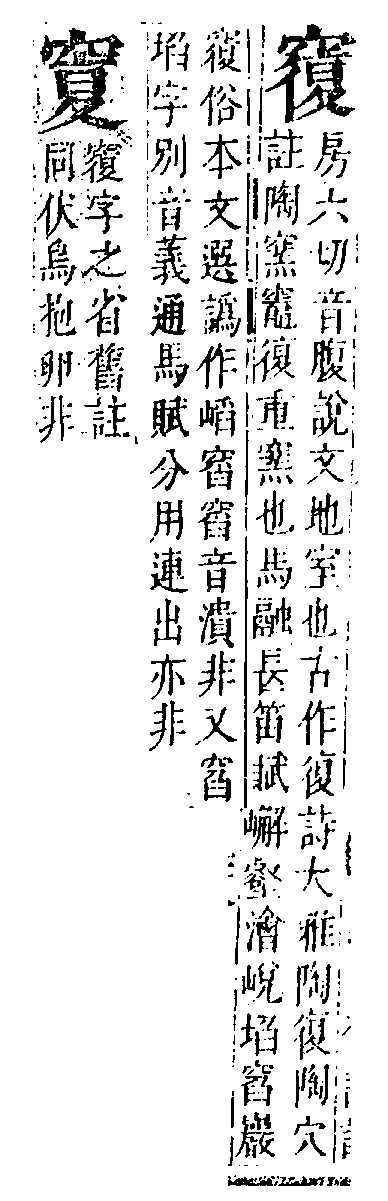 𥨍
房六切音腹說文地室也古作復詩大雅陶復陶穴
註陶窯竈復重窯也馬融長笛賦嶰壑澮峴㟋窞巖
𥨍俗本文選譌作嵧窞窞音潰非又窞
㘿字別音義通馬賦分用連出亦非
㝮
𥨍字之省舊註
同伏鳥抱卵非